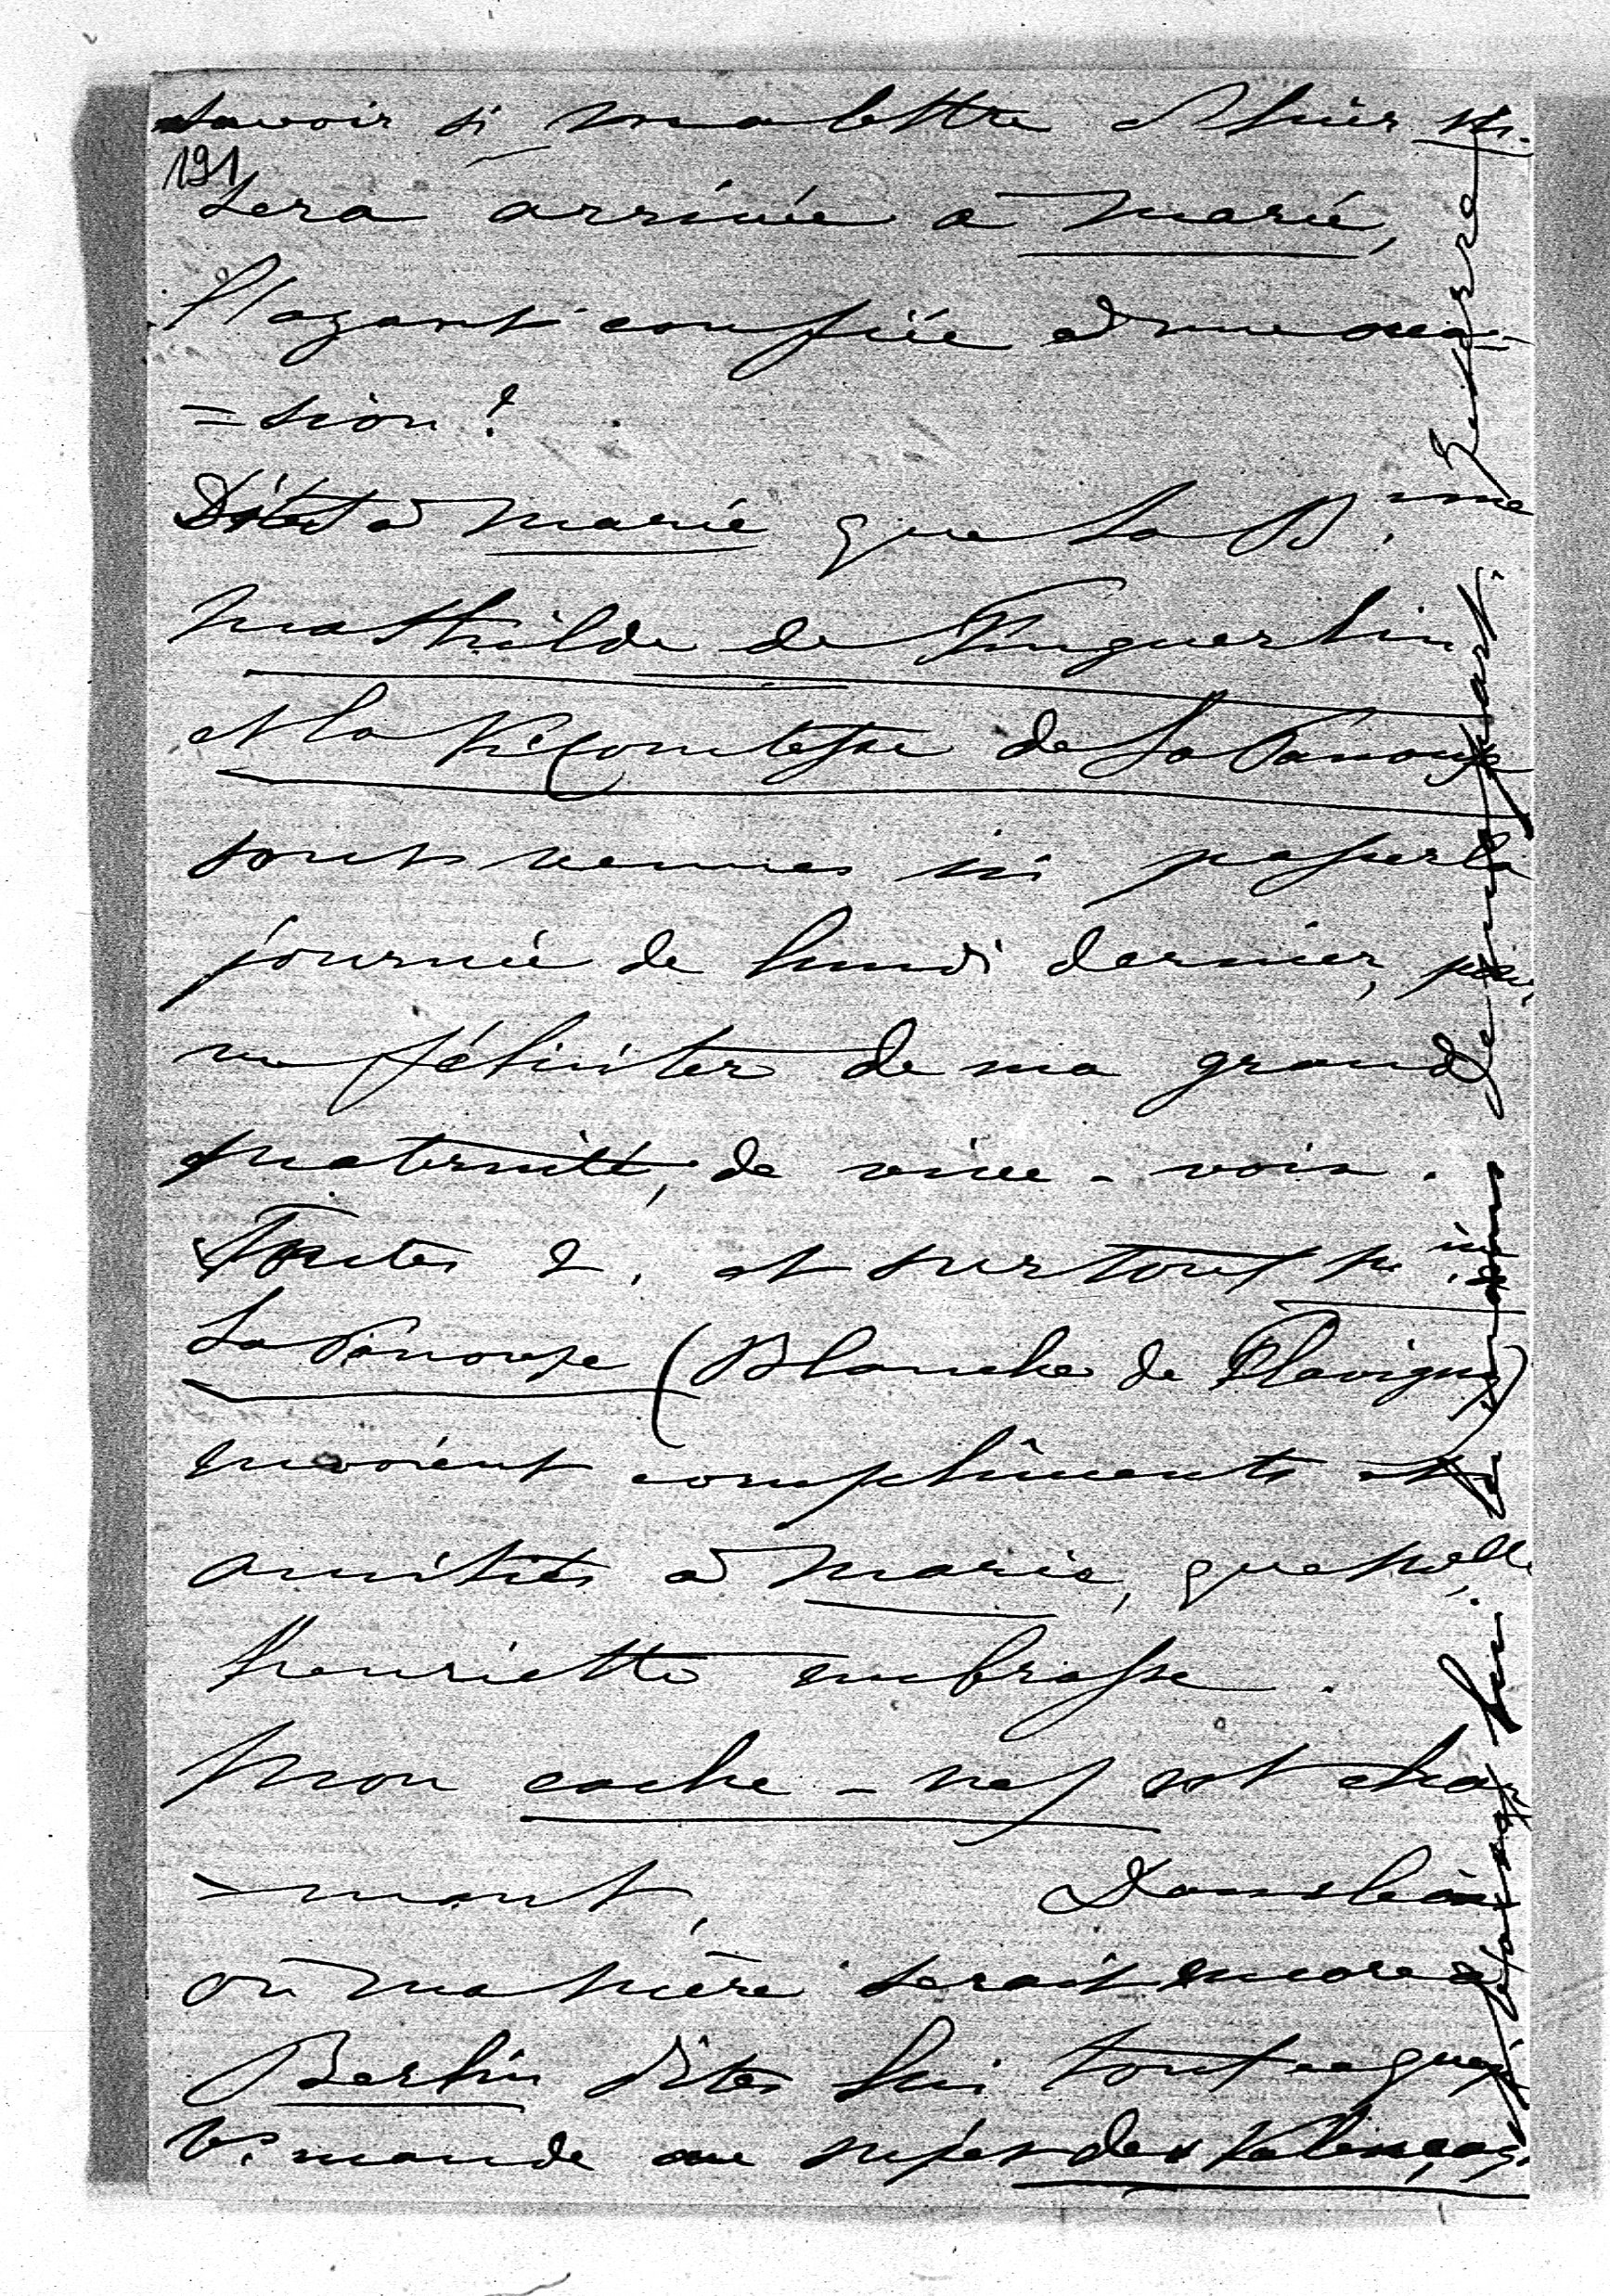 savoir si ma lettre d'hier m.
191
sera arrivée à Marie,
l'ayant confiée à une occa
=sion?
Dites à Marie que la B.nne
Mathilde de Finguerlin
et la Vicomtesse de La Panouse
sont venues ici passer la
journée de lundi dernier, pr.
me féliciter de ma grand
maternité, de vive-voix.
Toutes 2. et surtout M.me de
La Panouse (Blanche de Flavigny)
envoient complîments et
amitiés à Marie, que M.elle
Henriette embrasse.
Mon cache-nez est char
=mant, Dans le cas
où ma mère serait encore à
Berlin dites lui tout ce que je
vs. mande au sujet des Valençay.
lettre
de ma part.